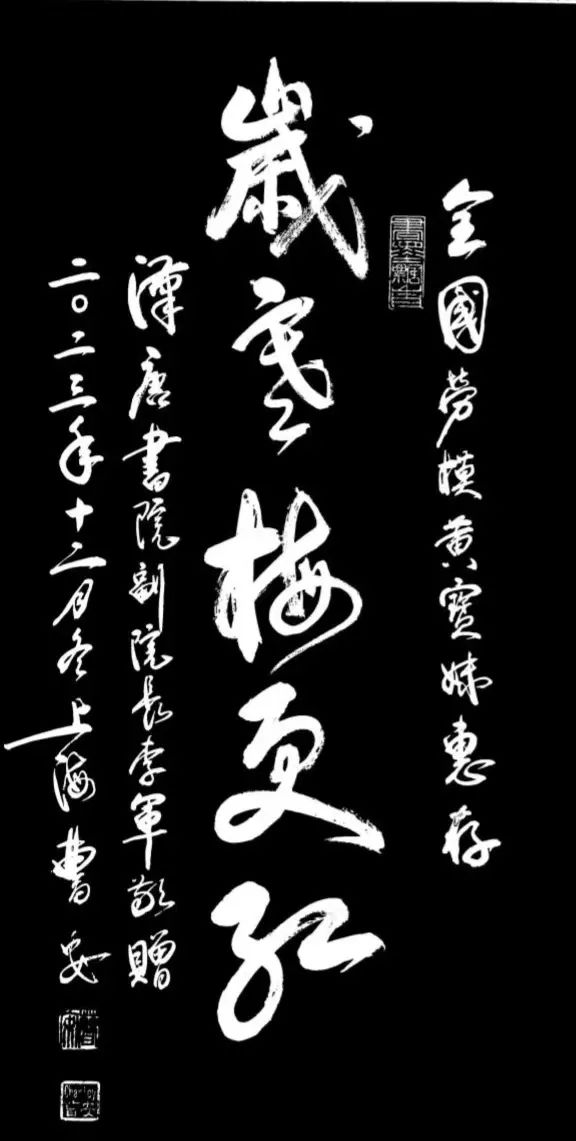 全國勞模黃寶妹惠存
歲寒梅更紅
漢唐書院副院長李軍敬贈
二〇二三年十二月冬上海曹安